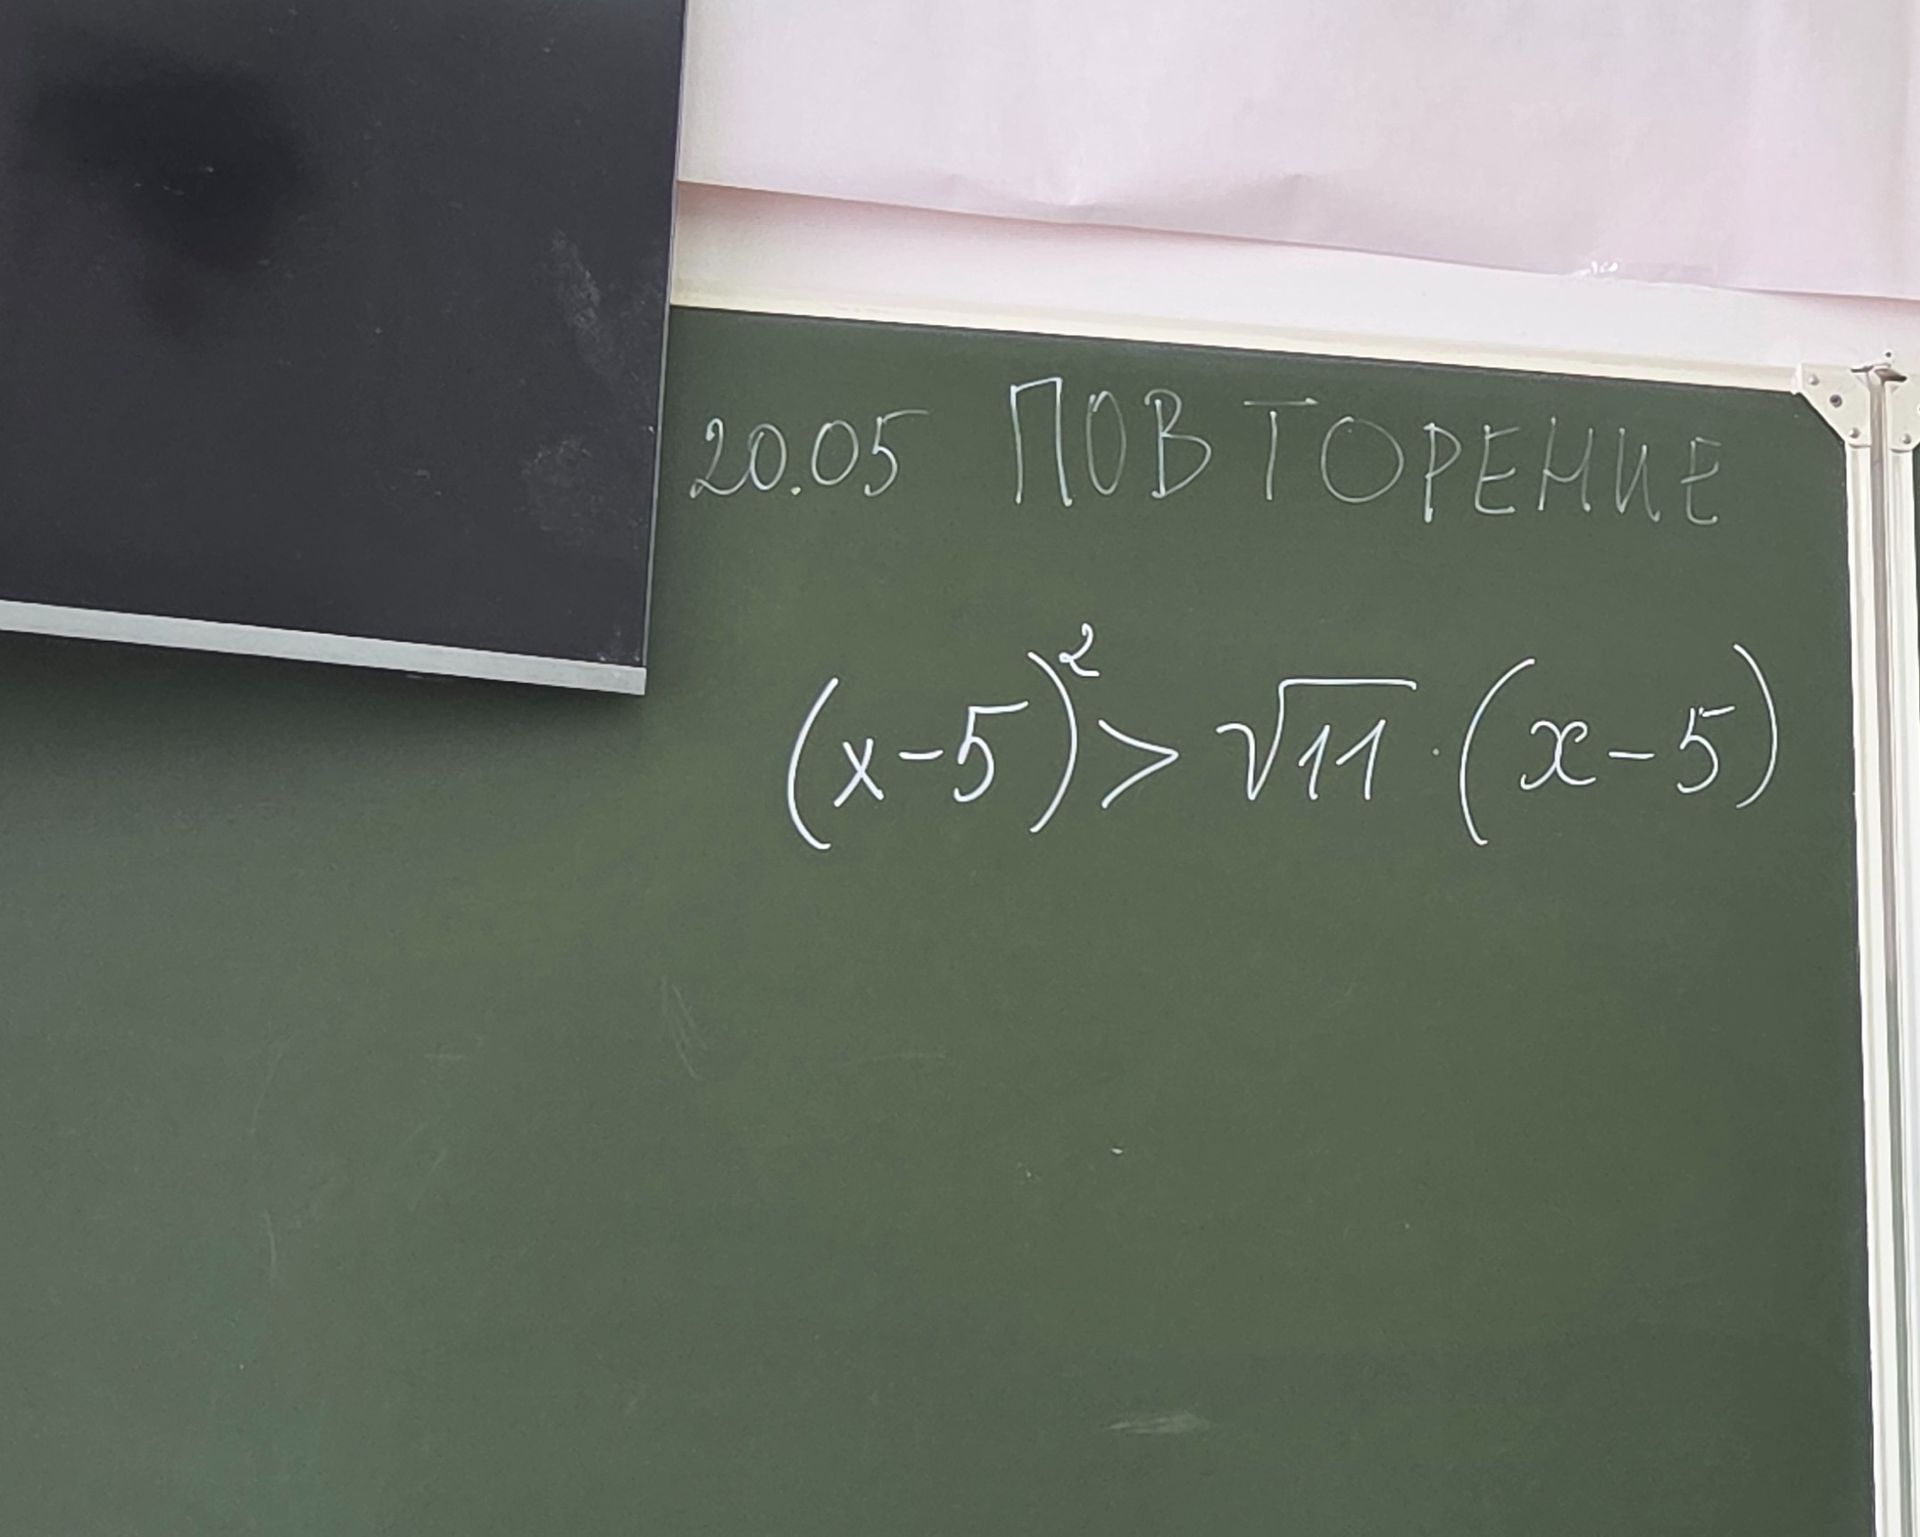 20.05 ПОВТОРЕНИЕ
(x-5)²>√11·(x-5)